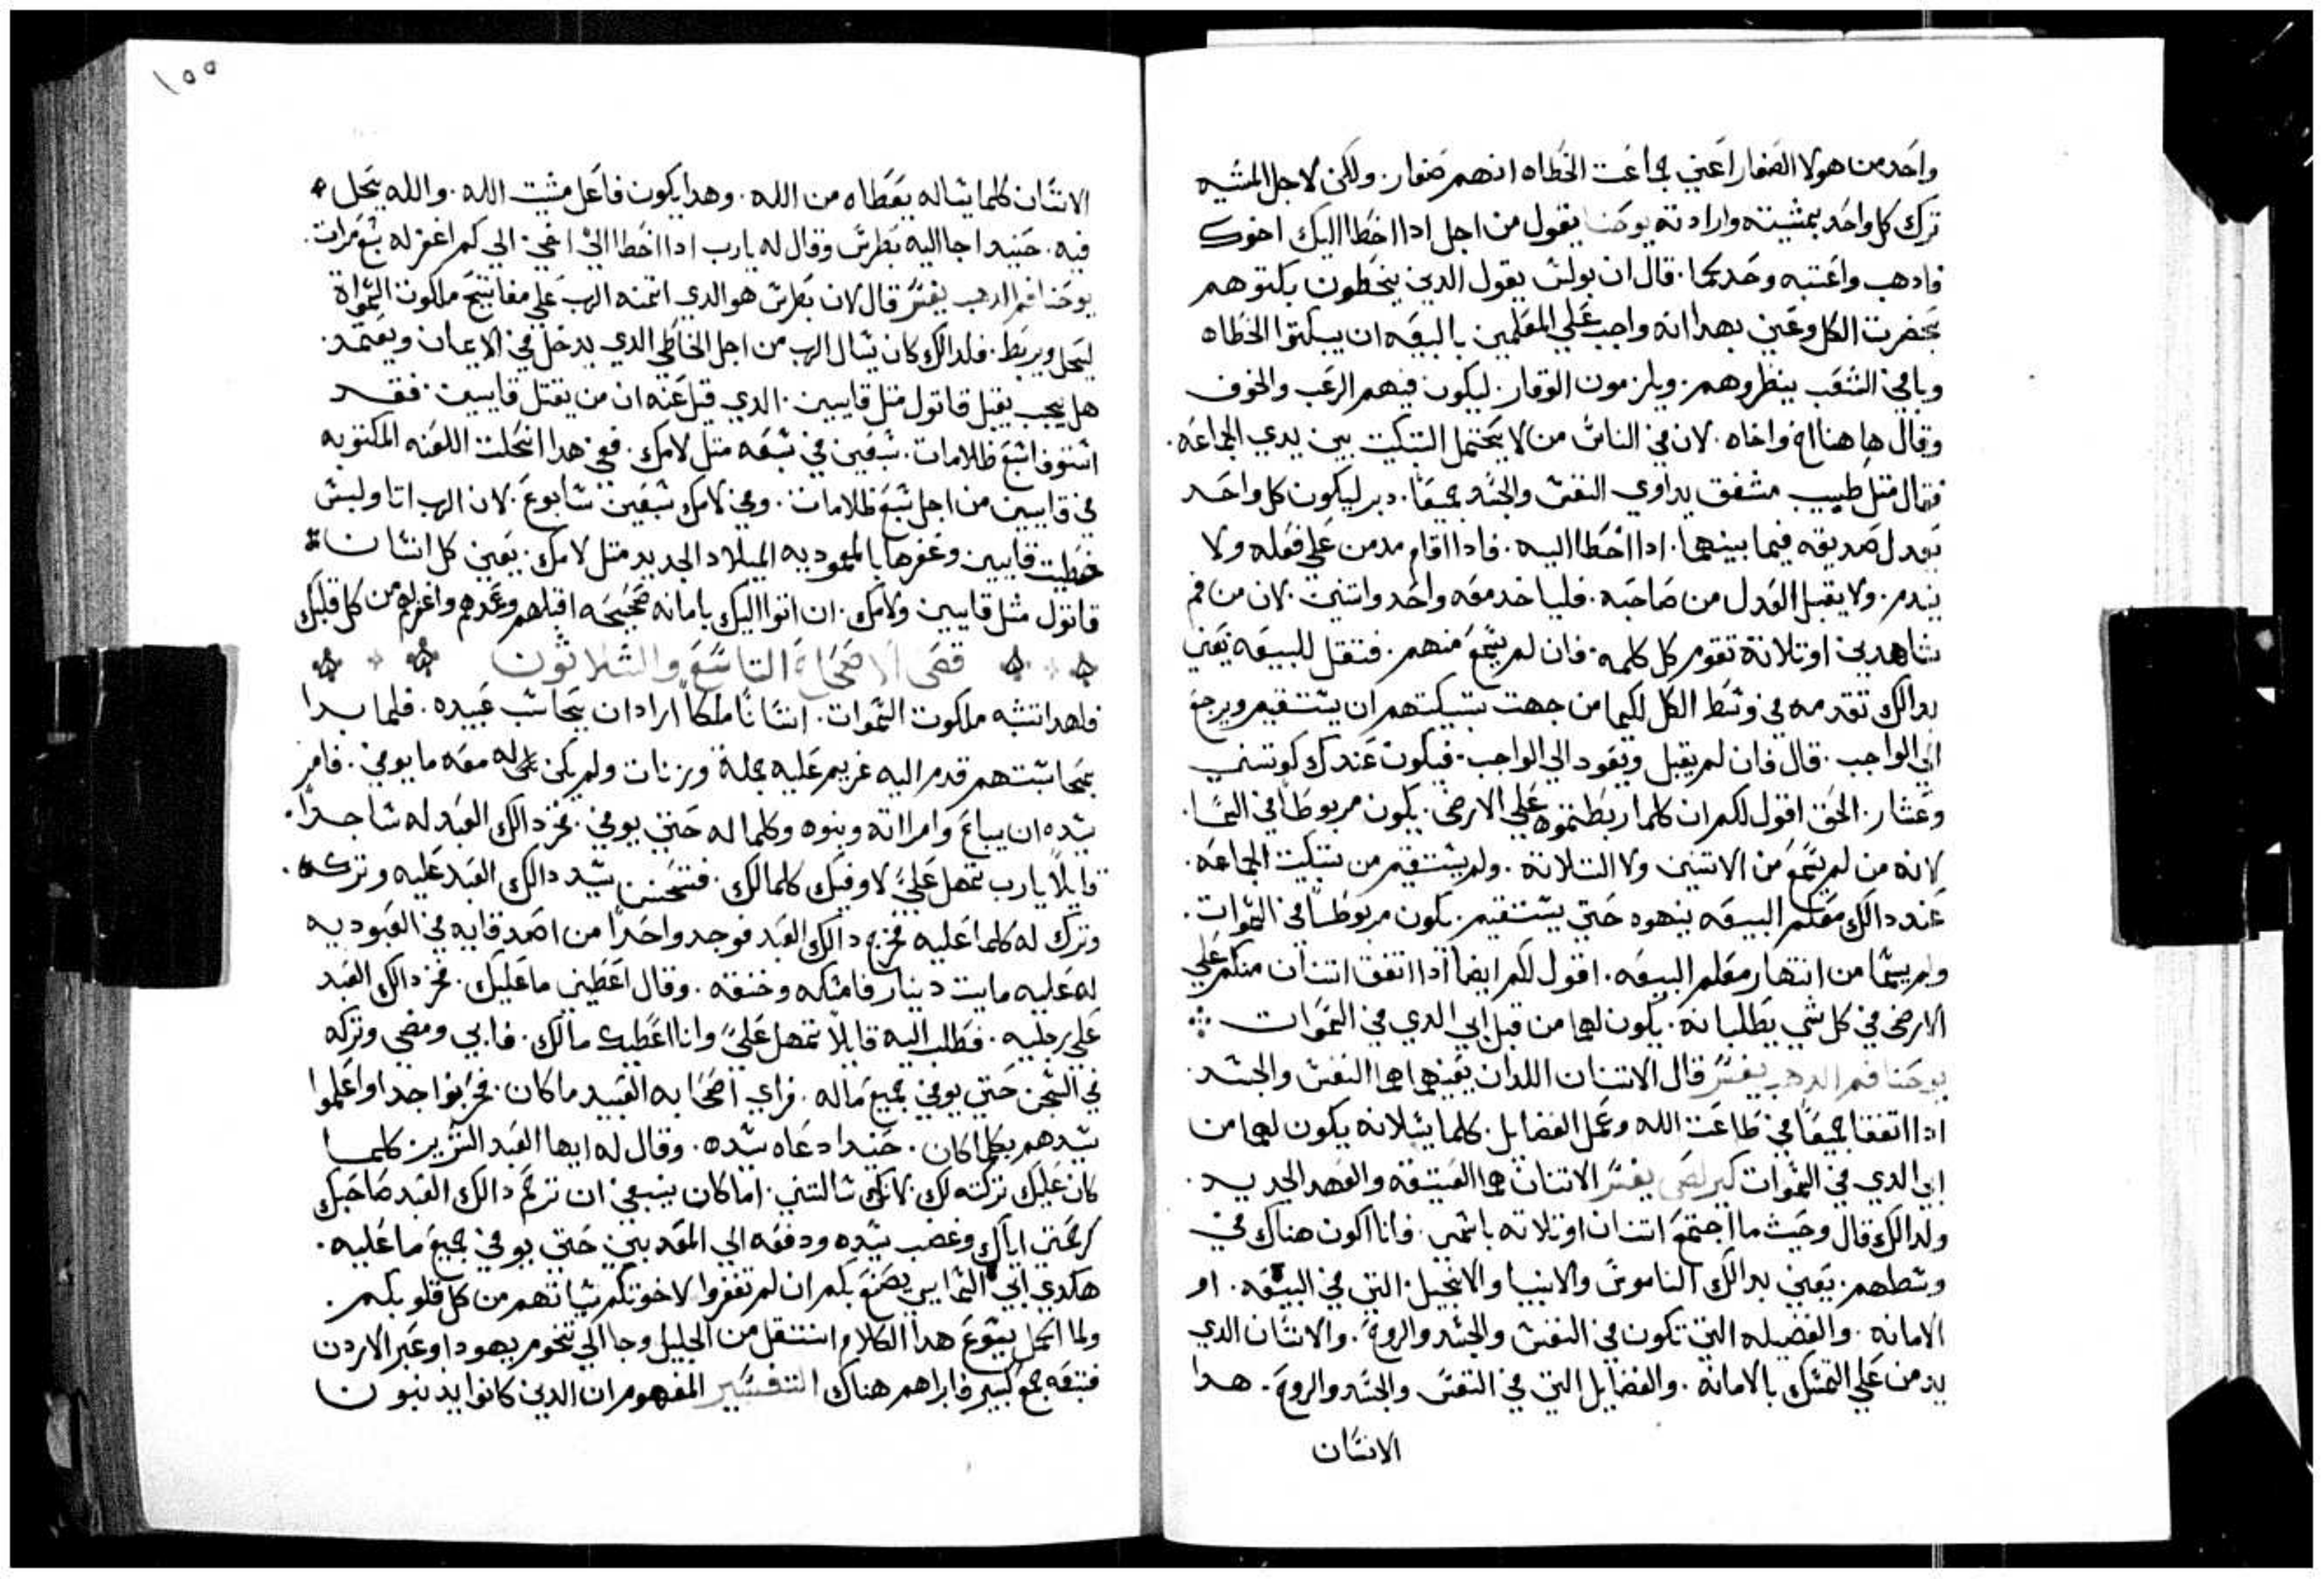 واحد من هولا الصغار اعني جماعت الخطاه انهم صغار. ولكن لاجل المشيه
ترك كل واحد بمشيته وارادته يوحنا يقول من اجل اداا خطا اليك اخوك
فادهب واعتبه وحدكما. قال ان بولس يقول الدين يخطون بكتوهم
بحضرت الكل وعني بهدا انه واجب علي المعلمين بالبيعه ان يبكتوا الخطاه
وباقي الشعب ينظروهم. ويلزمون الوقار. ليكون فيهم الرعب والخوف
وقال هاهنا اخ واخاه. لان في الناس من لا يحتمل التبكيت بين يدي الجماعه.
فقال متل طبيب مشفق يداوي النفس والجسد جميعا. دبر ليكون كل واحد
يعدل صديقه فيما بينهما. اداا خطا اليه. فادا اقام مدمن علي فعله ولا
يندم. ولا يقبل العدل من صاحبه. فلياخد معه واحد واتنين. لان من فم
شاهدين او تلاتة تقوم كل كلمه. فان لم يسمع منهم. فتقل للبيعه يعني
بدالك تقدمه في وسط الكل لكيما من جهت تبكيتهم ان يستقيم ويرجع
الي الواجب. قال فان لم يقبل ويعود الي الواجب. فيكون عندك كوتني
وعشار. الحق اقول لكم ان كلما ربطتموه علي الارض. يكون مربوطا في السما.
لانه من لم يسمع من الاتنين ولا التلاتة. ولم يستقيم من تبكيت الجماعه.
عند دالك معلم البيعه ينهوه حتي يستقيم. يكون مربوطا في السموات.
ولم يسما من انتهار معلم البيعه. اقول لكم ايضا اداا اتفق اتنان منكم علي
الارض في كل شي يطلبانه. يكون لهما من قبل ابي الدي في السموات
يوحنا فم الدهب يفسر قال الاتنان اللدان يعنيهما هما النفس والجسد.
اداا اتفقا جميعا في طاعت الله وعمل الفضايل. كلما يسلانه يكون لهما من
ابي الدي في السموات كيرلص يفسر الاتنان هما العتيقه والعهد الجديد.
ولدالك قال وحيت ما اجتمع اتنان او تلاته باسمي. فانا اكون هناك في
وسطهم. يعني بدالك الناموس والانبيا والانجيل. التي في البيعه. او
الامانه. والفضيله التي تكون في النفس والجسد والروح. والانسان الدي
يدمن علي التمسك بالامانة. والفضايل التي في النفس والجسد والروح. هدا
الانسان
١٥٥
الانسان كلما يساله يعطاه من الله. وهدا يكون فاعل مشيت الله. والله يحل
فيه. حنيد اجا اليه بطرس وقال له يارب اداا خطا الي اخي. الي كم اغفر له سبع مرات.
يوحنا فم الدهب يفسر قال لان بطرس هو الدي اتمنه الرب علي مفاتيح ملكوت السمواة
ليحل ويربط. فلدالك كان يسال الرب من اجل الخاطي الدي يدخل في الايمان ويعتمد.
هل يجب يقبل قاتول متل قايين. الدي قيل عنه ان من يقتل قايين. فقد
استوفا سبع ظلامات. سبعين في سبعه متل لامك. ففي هدا انحلت اللعنه المكتوبه
في قايين من اجل سبع ظلامات. وفي لامك سبعين سابوع. لان الرب اتا ولبس
خطيت قايين وغفرها بالمعموديه الميلاد الجديد متل لامك. يعني كل انسان
قاتول متل قايين ولامك. ان اتوا اليك بامانه صحيحه اقبلهم وعمدهم واغفر لهم من كل قلبك
قصي الاصحاح التاسع والتلاتون
فلهدا تشبه ملكوت السموات. انسانا ملكا اراد ان يحاسب عبيده. فلما بدا
بمحاسبتهم قدم اليه غريم عليه جملة وزنات ولم يكن له معه ما يوفي. فامر
سيده ان يباع وامراته وبنوه وكلما له حتي يوفي. فخر دالك العبد له ساجدا.
قايلا يارب تمهل علي لاوفيك كلما لك. فتحنن سيد دالك العبد عليه وتركه.
وترك له كلما عليه فخرج دالك العبد فوجد واحدا من اصدقايه في العبوديه
له عليه مايت دينار فامسكه وخنقه. وقال اعطيني ما عليك. فخر دالك العبد
علي رجليه. فطلب اليه قايلا تمهل علي وانا اعطيك مالك. فابي ومضي وتركه
في السجن حتي يوفي جميع ماله. فراي اصحابه العبيد ما كان. فحزنوا جدا واعلموا
سيدهم بكلما كان. حنيد دعاه سيده. وقال له ايها العبد الشرير كلما
كان عليك تركته لك. لانك سالتني. اما كان ينبغي ان ترحم دالك العبد صاحبك
كرحمتي اياك وغضب سيده ودفعه الي المعدبين حتي يوفي جميع ما عليه.
هكدي ابي السمايي يصنع بكم ان لم تغفروا لاخوتكم سياتهم من كل قلوبكم.
ولما اكمل يسوع هدا الكلام انتقل من الجليل وجا الي تخوم يهودا وعبر الاردن
فتبعه جمع كبير فابراهم هناك التفسير المفهوم ان الدين كانوا يدنبون